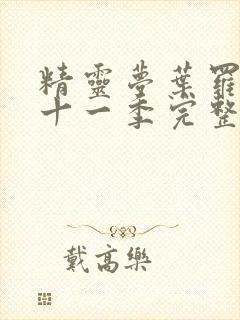 精靈夢葉羅
十一季完整
戴高樂